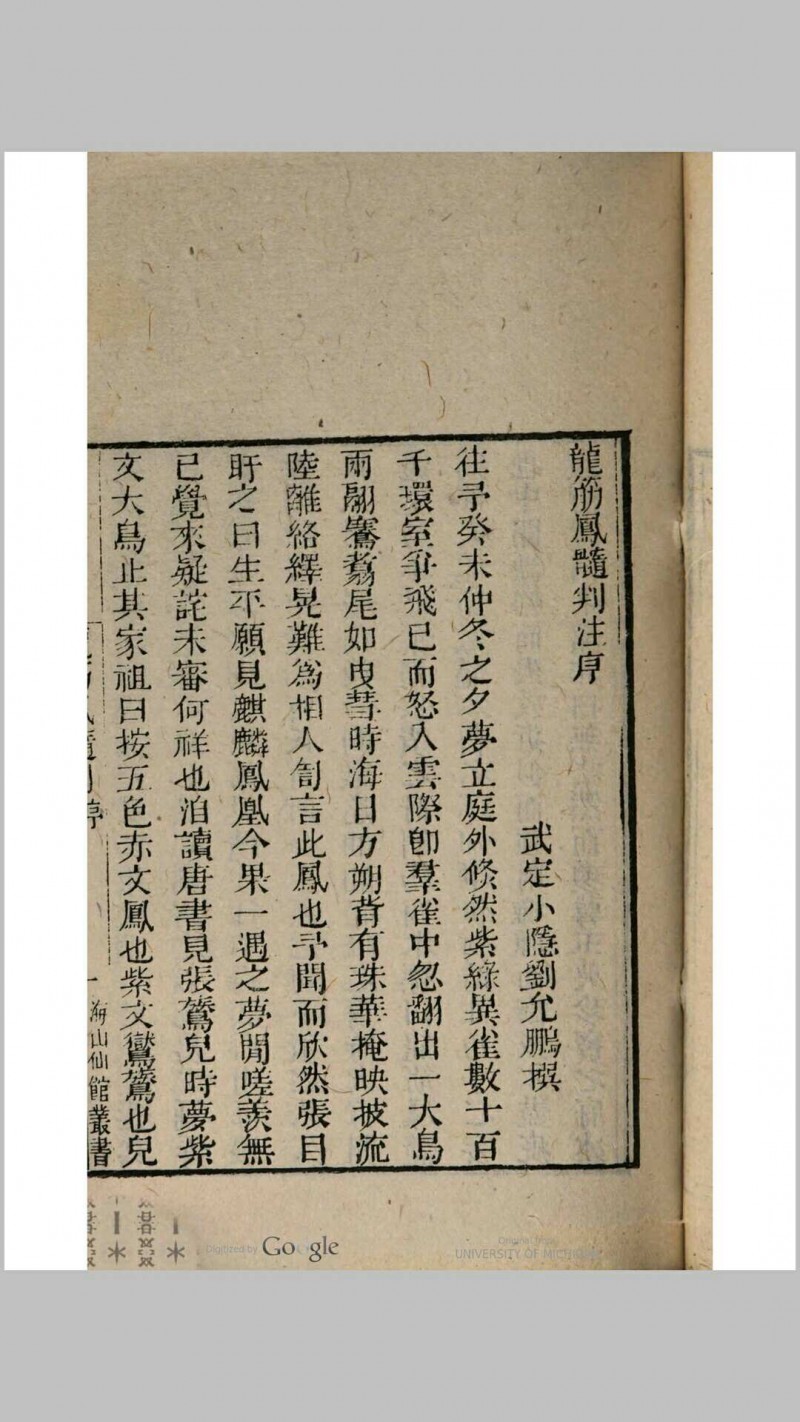 龍筋鳳髓判注序
武定小隱劉允鵬撰
往予癸未仲冬之夕夢立庭外倏然紫綠異雀數十百
千環室爭飛已而怒入雲際卽羣雀中忽翻出一大鳥
兩翮騫翥尾如曳彗時海日方朔背有珠華掩映披流
陸離絡繹晃難為相人訇言此鳳也予聞而欣然張目
盱之曰生平願見麒麟鳳凰今果一遇之夢閒嗟羨無
已覺來疑詫未審何祥也洎讀唐書見張鷟兒時夢紫
文大鳥止其家祖曰按五色赤文鳳也紫文鸑鷟也兒
一 海山仙館叢書
Digitized by Google
Original from
UNIVERSITY OF MICHIGAN